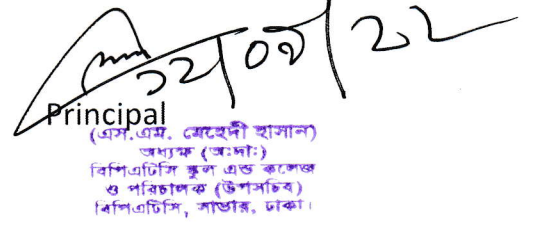 ১২/০৬/২২
Principal
(এস.এম. মেহেদী হাসান)
অধ্যক্ষ (অঃদাঃ)
বিপিএটিসি স্কুল এন্ড কলেজ
ও পরিচালক (উপসচিব)
বিপিএটিসি, সাভার, ঢাকা।